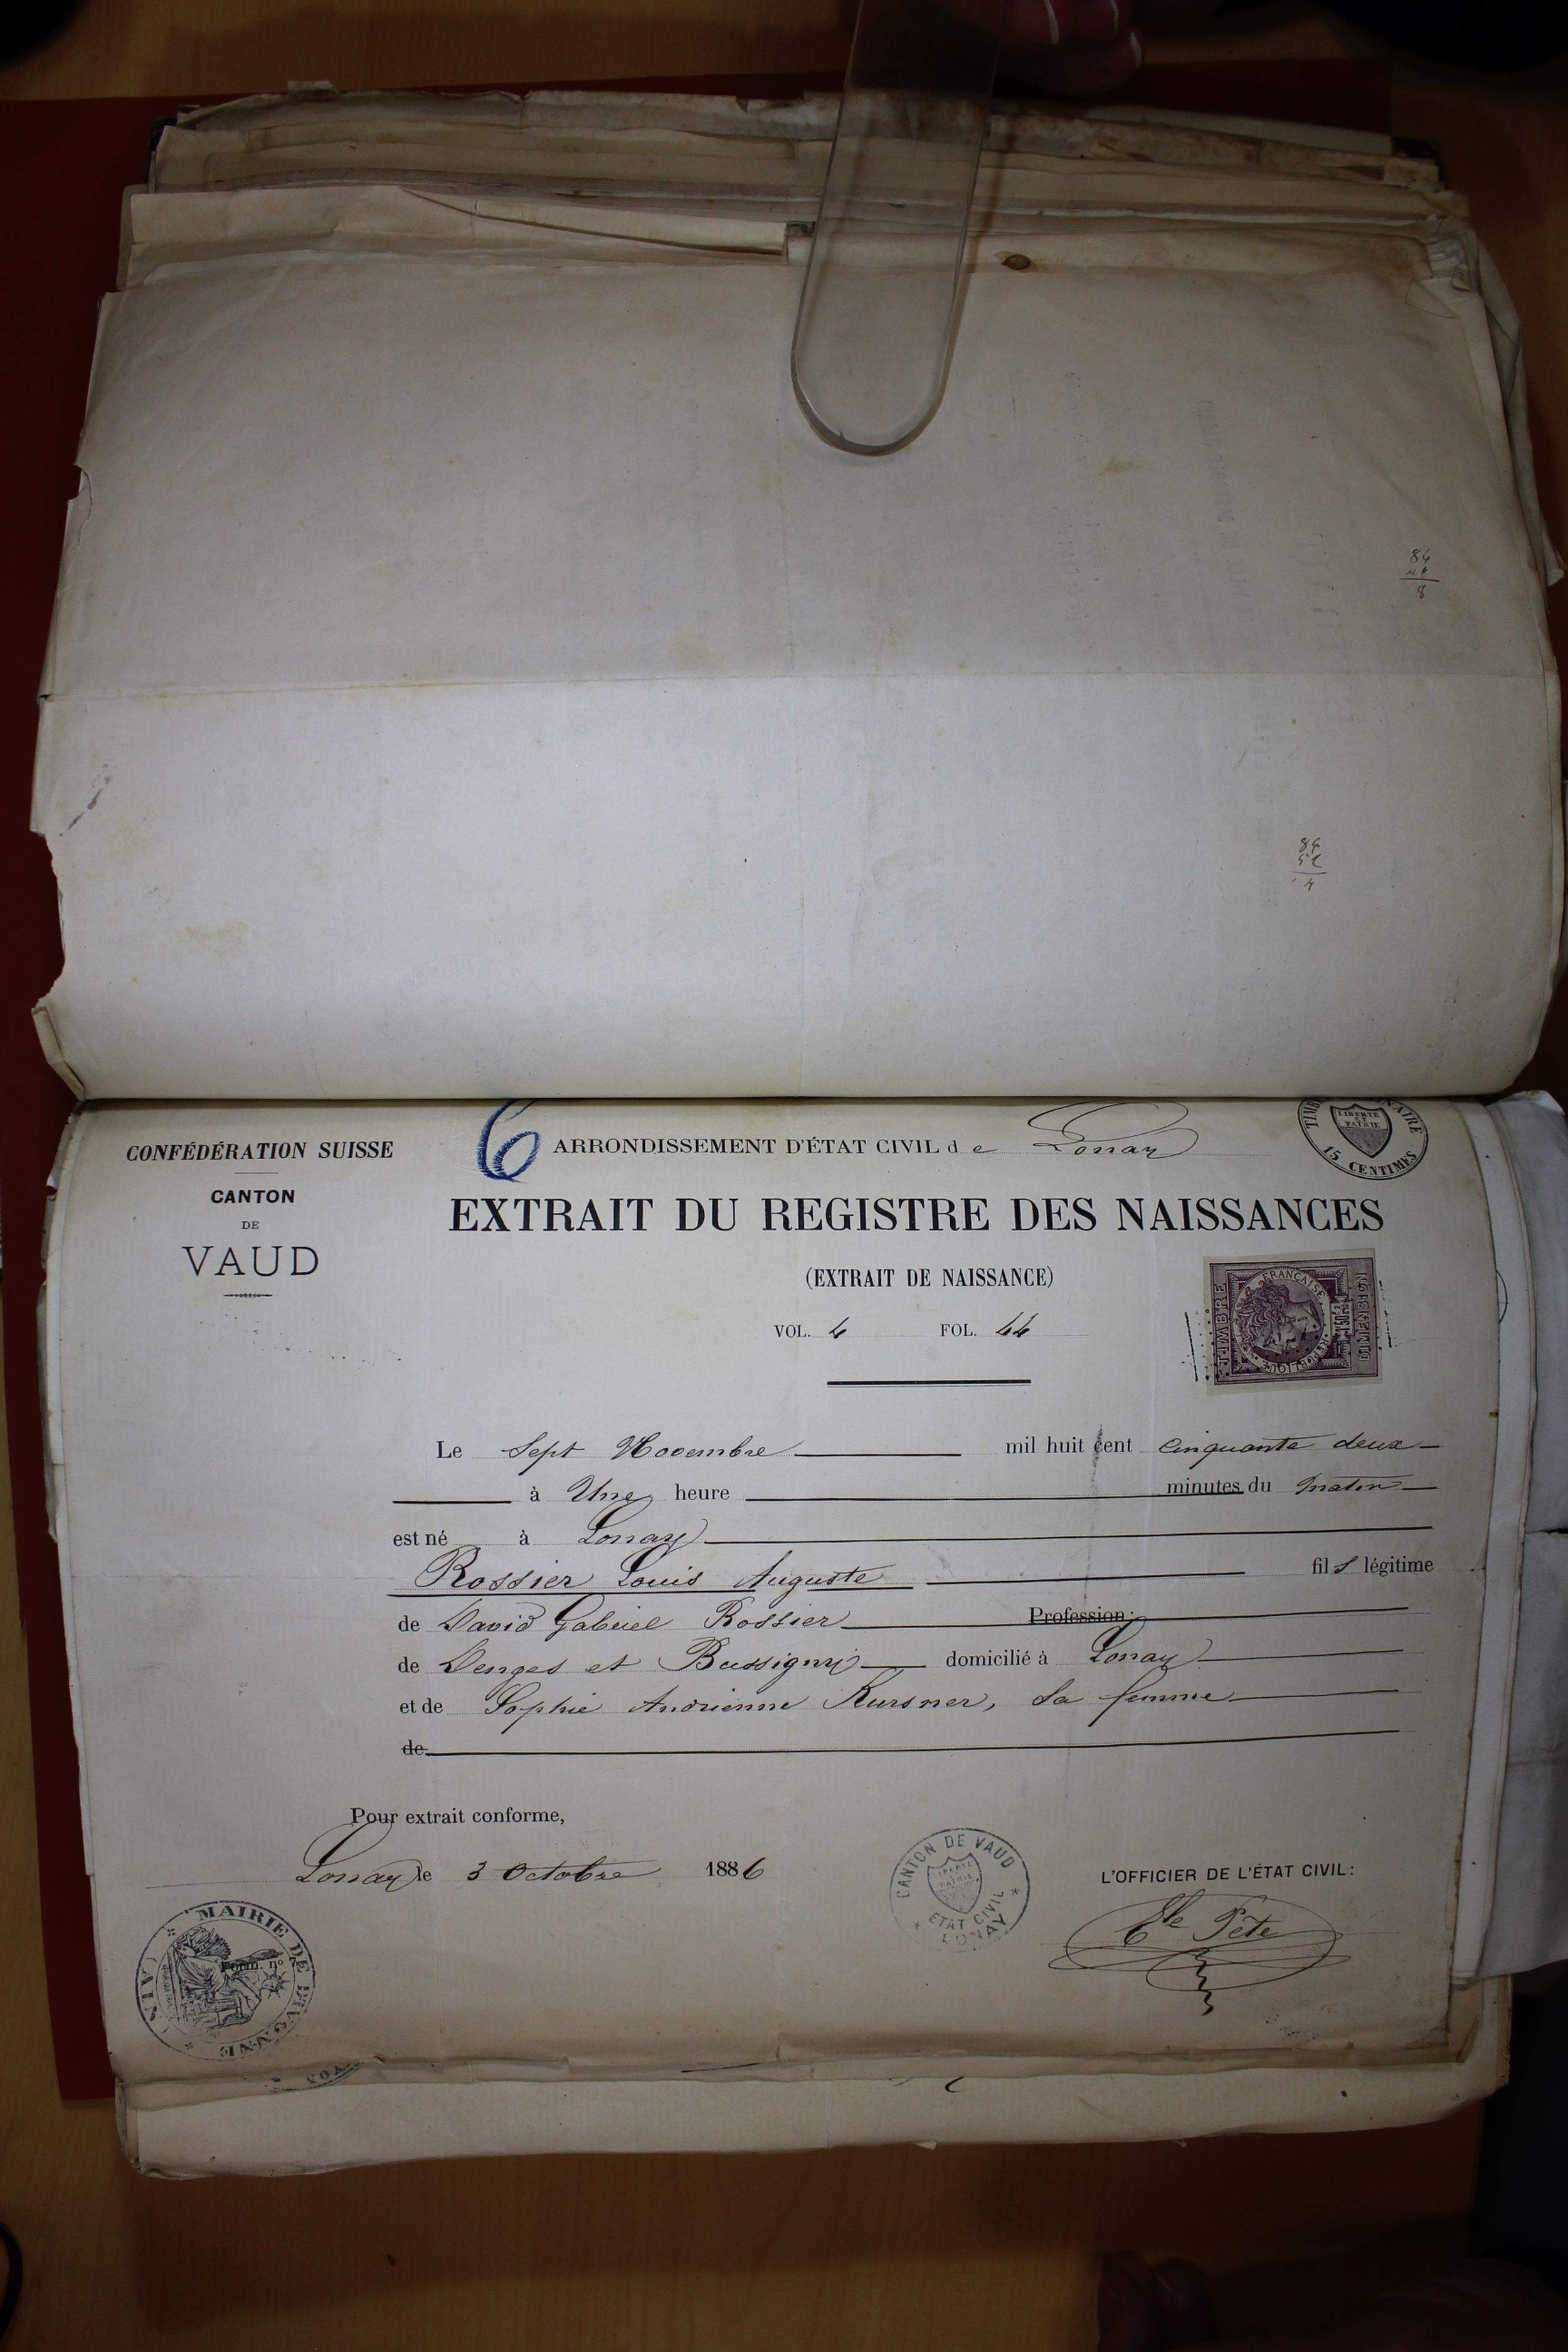 84
8
84
CONFÉDÉRATION SUISSE
CANTON
DE
VAUD
6
ARRONDISSEMENT D'ÉTAT CIVIL de Lonay
LIBERTÉ ET PATRIE
15 CENTIMES
EXTRAIT DU REGISTRE DES NAISSANCES
(EXTRAIT DE NAISSANCE)
VOL. 4 FOL. 44
TIMBRE
RÉPUBLIQUE FRANÇAISE
DIMENSION
Le Sept Novembre mil huit cent cinquante deux
à Une heure minutes du matin
est né à Lonay
Rossier Louis Auguste fils légitime
de David Gabriel Rossier Profession:
de Denges et Bussigny domicilié à Lonay
et de Sophie Andrienne Kursner, sa femme
de
Pour extrait conforme,
Lonay le 3 Octobre 1886
CANTON DE VAUD
LIBERTÉ PATRIE
ETAT CIVIL
LONAY
L'OFFICIER DE L'ÉTAT CIVIL:
MAIRIE DE DIVONNE
(AIN)
Form. nº 7